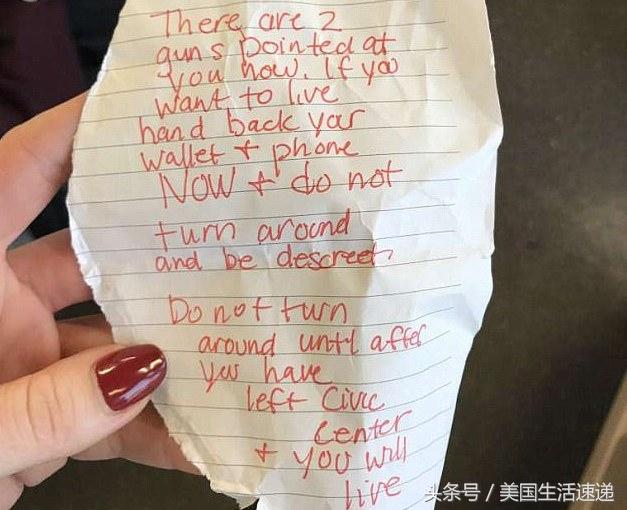 There are 2
guns pointed at
you now. If you
want to live
hand back your
wallet + phone
NOW + do not
turn around
and be descreet
Do not turn
around until after
you have
left Civic
Center
+ you will
live
头条号 / 美国生活速递